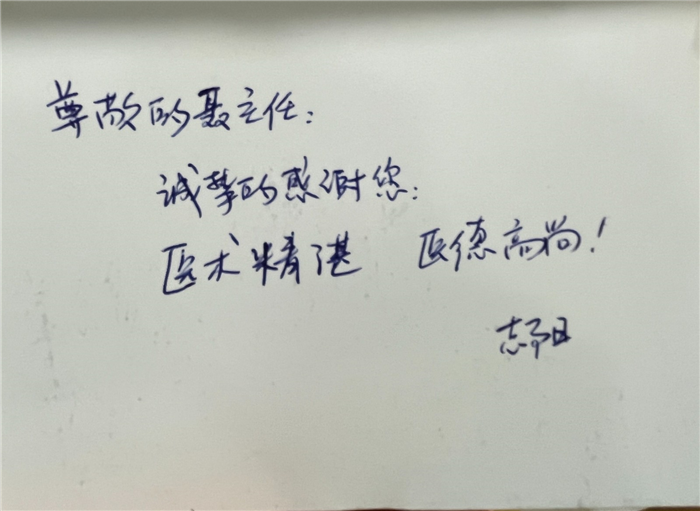 尊敬的聂主任：
诚挚的感谢您：
医术精湛 医德高尚！